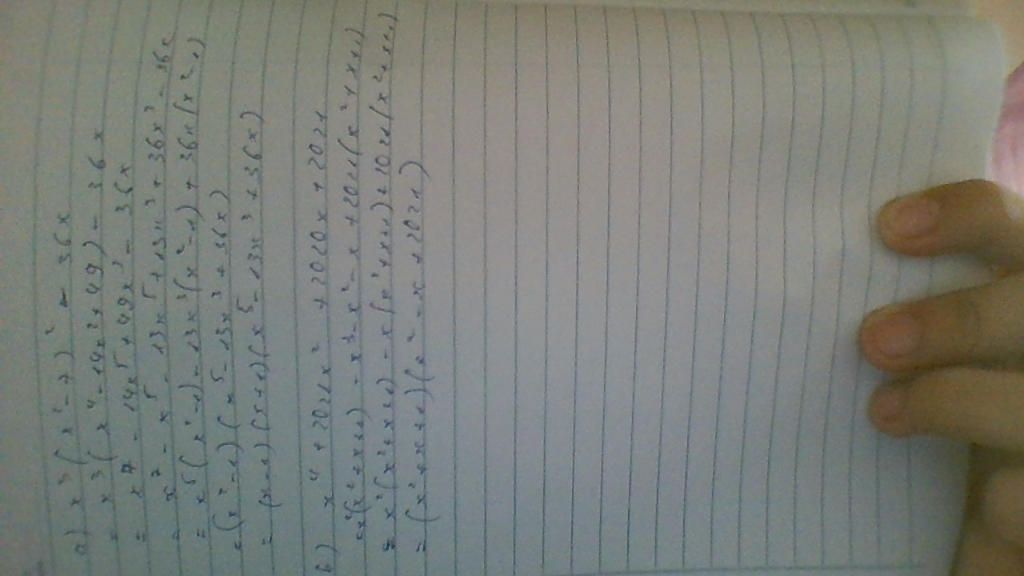 a) x³(x²-7)² - 36x
= x³(x⁴-14x²+49) - 36x
= x⁷ - 14x⁵ + 49x³ - 36x
= x⁷ - x⁵ - 13x⁵ + 13x³ + 36x³ - 36x
= x⁵(x²-1) - 13x³(x²-1) + 36x(x²-1)
= (x²-1)(x⁵-13x³+36x)
= (x-1)(x+1)(x⁵-13x³+36x)
b) x⁴ + 2021x² + 2020x + 2021
= x²(x²+x+1) - x³-x²-x + 2021(x²+x+1)
= x²(x²+x+1) - x(x²+x+1) + 2021(x²+x+1)
= (x²+x+1)(x²-x+2021)